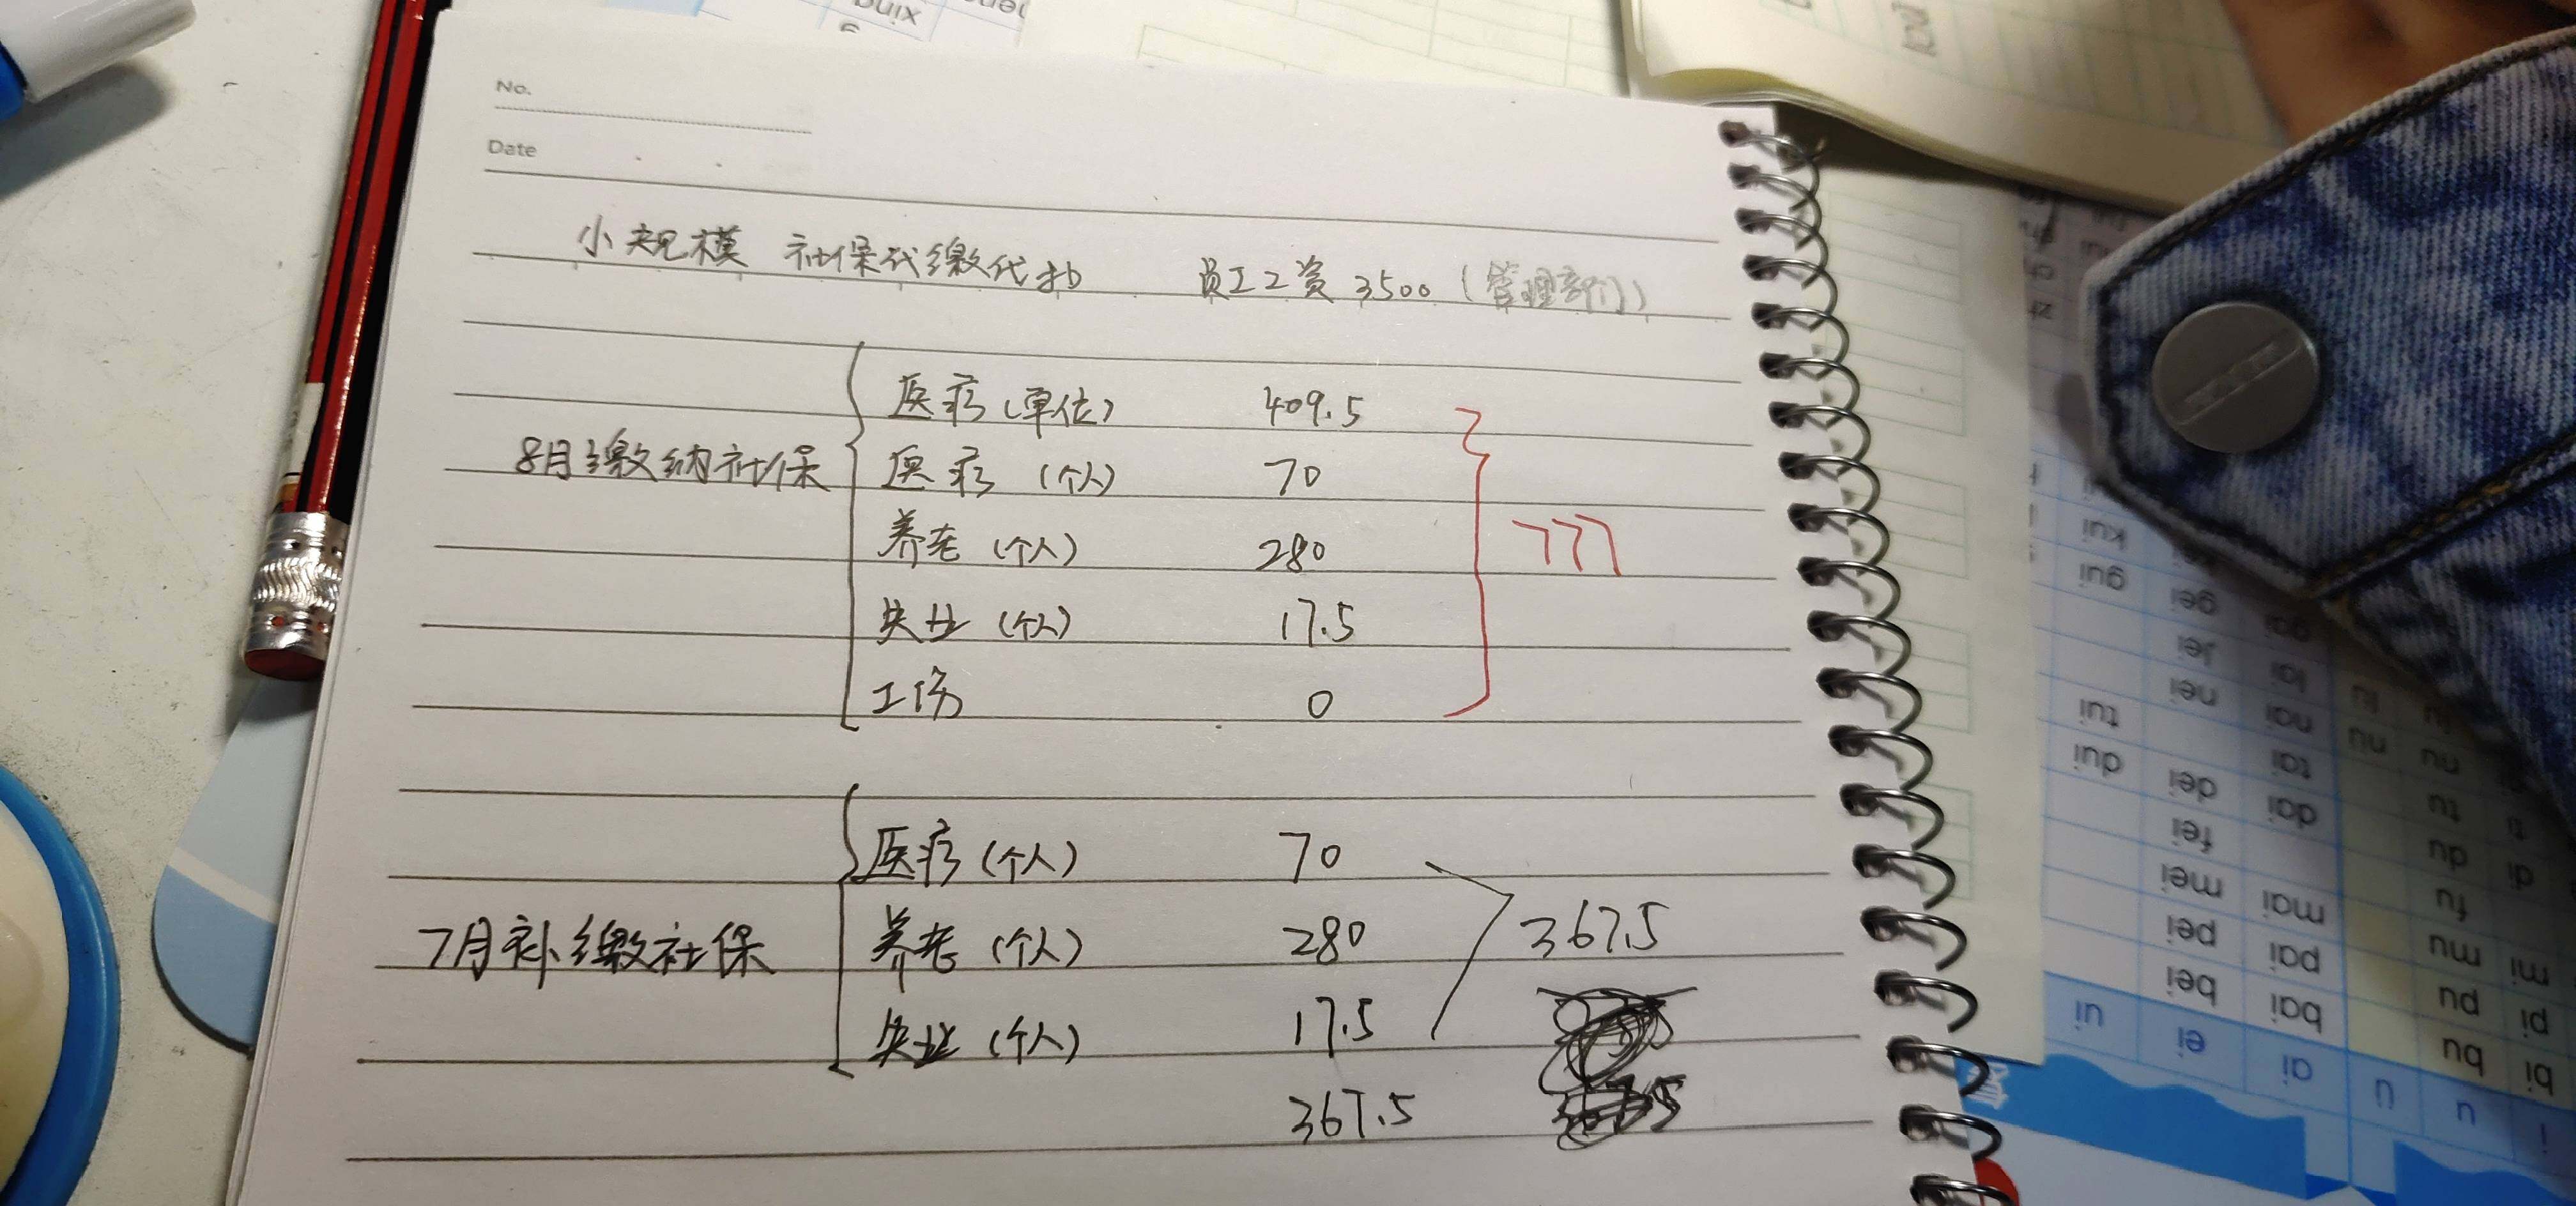 No.
Date
小规模 社保代缴代扣 员工工资 3500 (管理部门)
8月缴纳社保
医疗(单位) 409.5
医疗(个人) 70
养老(个人) 280
失业(个人) 17.5
工伤 0
777
7月补缴社保
医疗(个人) 70
养老(个人) 280
失业(个人) 17.5
367.5
367.5
xing
kui
gui
gei
lei
nei
lai
nai
tui
tai
nu
dui
dei
dai
tu
fei
du
mei
mai
fu
pei
pai
mu
mi
bei
bai
pu
pi
ui
ei
ai
bu
bi
ü
u
i